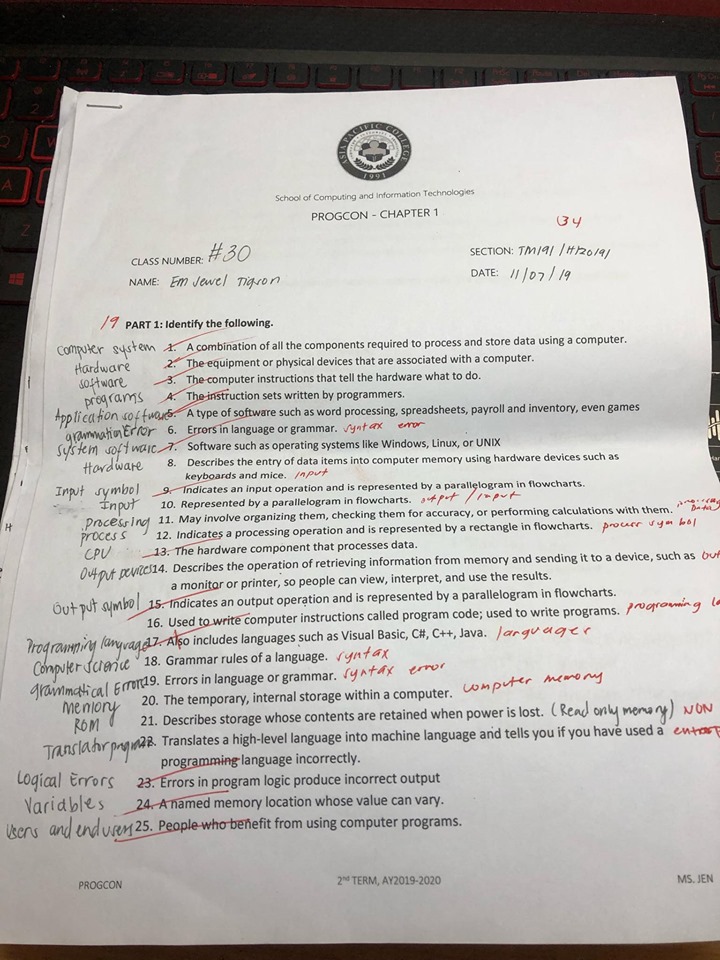 ASIA PACIFIC COLLEGE
1991
School of Computing and Information Technologies
PROGCON - CHAPTER 1
34
CLASS NUMBER: #30
SECTION: TM191 /H120191
NAME: Em Jewel Tigson
DATE: 11/07/19
19 PART 1: Identify the following.
Computer system 1. A combination of all the components required to process and store data using a computer.
Hardware 2. The equipment or physical devices that are associated with a computer.
software 3. The computer instructions that tell the hardware what to do.
programs 4. The instruction sets written by programmers.
Application software 5. A type of software such as word processing, spreadsheets, payroll and inventory, even games
Error 6. Errors in language or grammar. syntax error
System software 7. Software such as operating systems like Windows, Linux, or UNIX
Hardware 8. Describes the entry of data items into computer memory using hardware devices such as
keyboards and mice. input
Input symbol 9. Indicates an input operation and is represented by a parallelogram in flowcharts.
Input 10. Represented by a parallelogram in flowcharts. output / input
processing 11. May involve organizing them, checking them for accuracy, or performing calculations with them. Data
process 12. Indicates a processing operation and is represented by a rectangle in flowcharts. process symbol
CPU 13. The hardware component that processes data.
Output Devices 14. Describes the operation of retrieving information from memory and sending it to a device, such as
a monitor or printer, so people can view, interpret, and use the results.
Output symbol 15. Indicates an output operation and is represented by a parallelogram in flowcharts.
16. Used to write computer instructions called program code; used to write programs. programming
Programming language 17. Also includes languages such as Visual Basic, C#, C++, Java. languages
Computer Science 18. Grammar rules of a language. syntax
Grammatical Error 19. Errors in language or grammar. syntax error
Memory 20. The temporary, internal storage within a computer. computer memory
ROM 21. Describes storage whose contents are retained when power is lost. (Read only memory) NON
Translator program 22. Translates a high-level language into machine language and tells you if you have used a
programming language incorrectly.
Logical Errors 23. Errors in program logic produce incorrect output
Variables 24. A named memory location whose value can vary.
Users and end users 25. People who benefit from using computer programs.
PROGCON
2ND TERM, AY2019-2020
MS. JEN